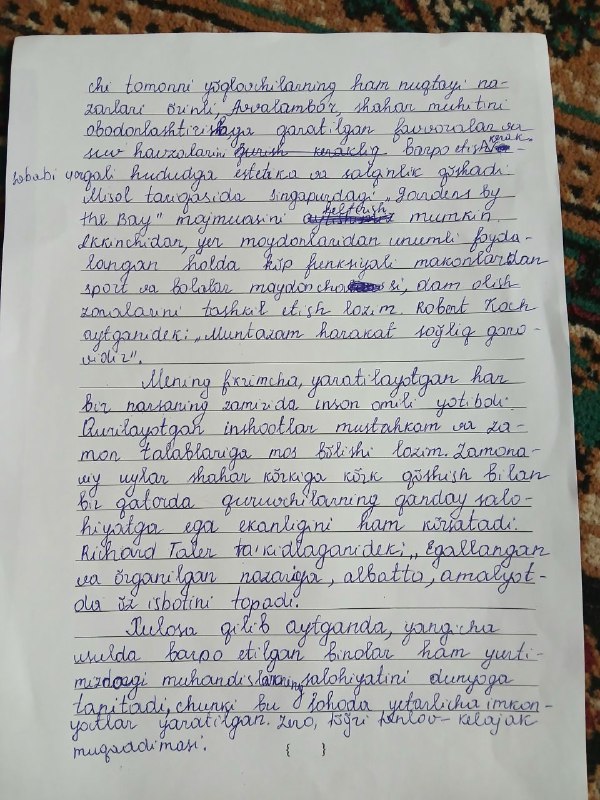 chi tomonni yoqlovchilarning ham nuqtayi na-
zarlari òrinli. Avvalambor, shahar muhitini
obodonlashtirishga qaratilgan favvoralar va
suv havzalarini barpo etish kerak-
Sababi yoqali hududga estetika va salqinlik qòshadi.
Misol tariqasida Singapurdagi „Gardens by
the Bay" majmuasini keltirish mumkin.
Ikkinchidan, yer maydonlaridan unumli foyda-
langan holda kòp funksiyali makonlardan
sport va bolalar maydonchasi, dam olish
zonalarini tashkil etish lozim. Robert Koch
aytganidek: „Muntazam harakat sog'liq garo-
vidir".
Mening fikrimcha, yaratilayotgan har
bir narsaning zamirida inson omili yotibdi.
Qurilayotgan inshootlar mustahkam va za-
mon talablariga mos bòlishi lozim. Zamona-
viy uylar shahar kòrkiga kòrk qòshish bilan
bir qatorda quruvchilarning qanday salo-
hiyatga ega ekanligini ham kòrsatadi.
Richard Taler ta'kidlaganidek: „Egallangan
va òrganilgan nazariya, albatta, amaliyot-
da òz isbotini topadi.
Xulosa qilib aytganda, yangicha
usulda barpo etilgan binolar ham yurti-
mizdagi muhandislarning salohiyatini dunyoga
tanitadi, chunki bu sohada yetarlicha imkon-
yatlar yaratilgan. Zero, tòg'ri tanlov - kelajak
muqaddimasi.
{ }